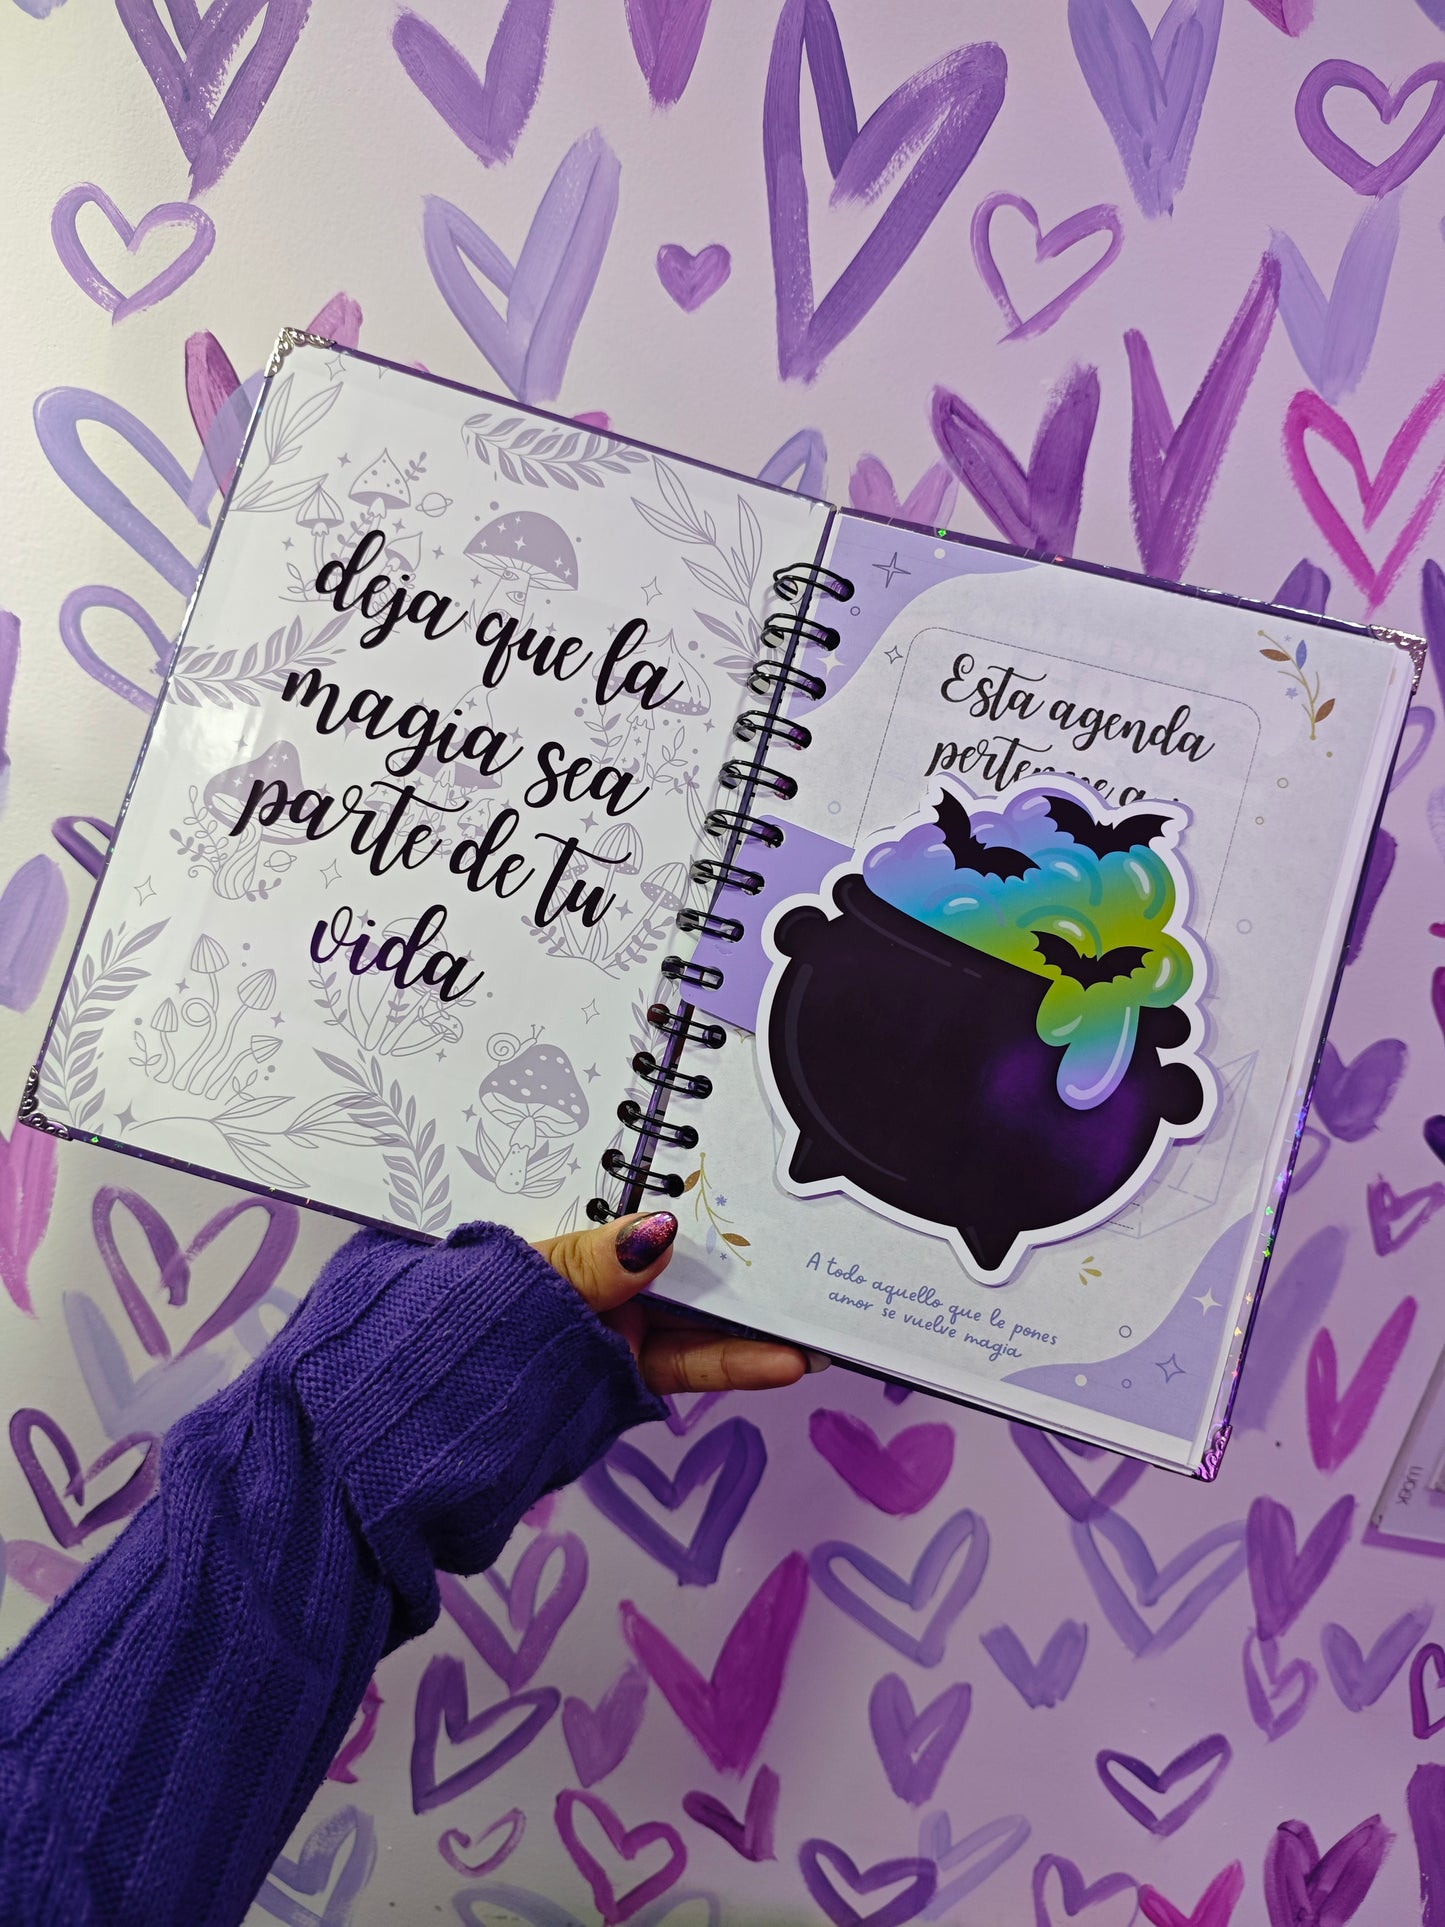 deja que la
magia sea
parte de tu
vida
Esta agenda
pertenece a:
A todo aquello que le pones
amor se vuelve magia